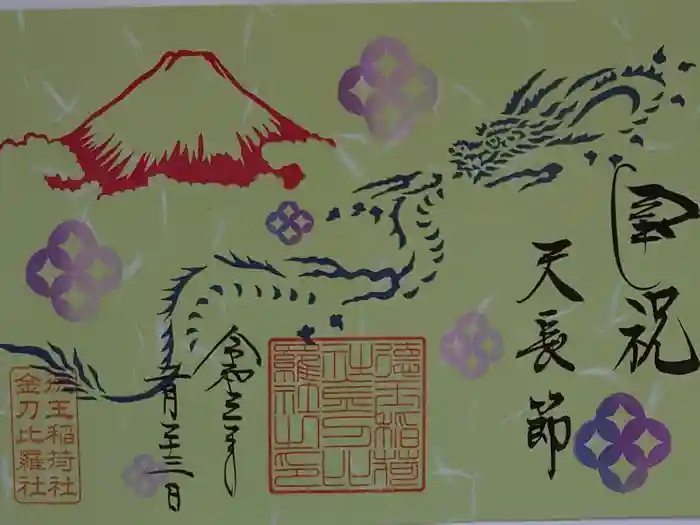 奉祝
天長節
徳王稲荷
社金刀比
羅社之印
令和
二月二十三日
徳王稲荷社
金刀比羅社